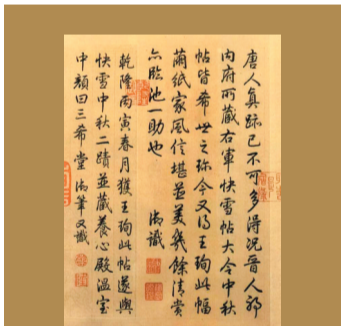 唐人真跡已不可多得況晉人耶
內府所藏右軍快雪帖大令中秋
帖皆希世之珍今又得王珣此幅
繭紙家風信堪並美幾餘清賞
亦臨池一助也 御識
乾隆丙寅春月獲王珣此帖遂與
快雪中秋二蹟並藏養心殿溫室
中顏曰三希堂 御筆又識